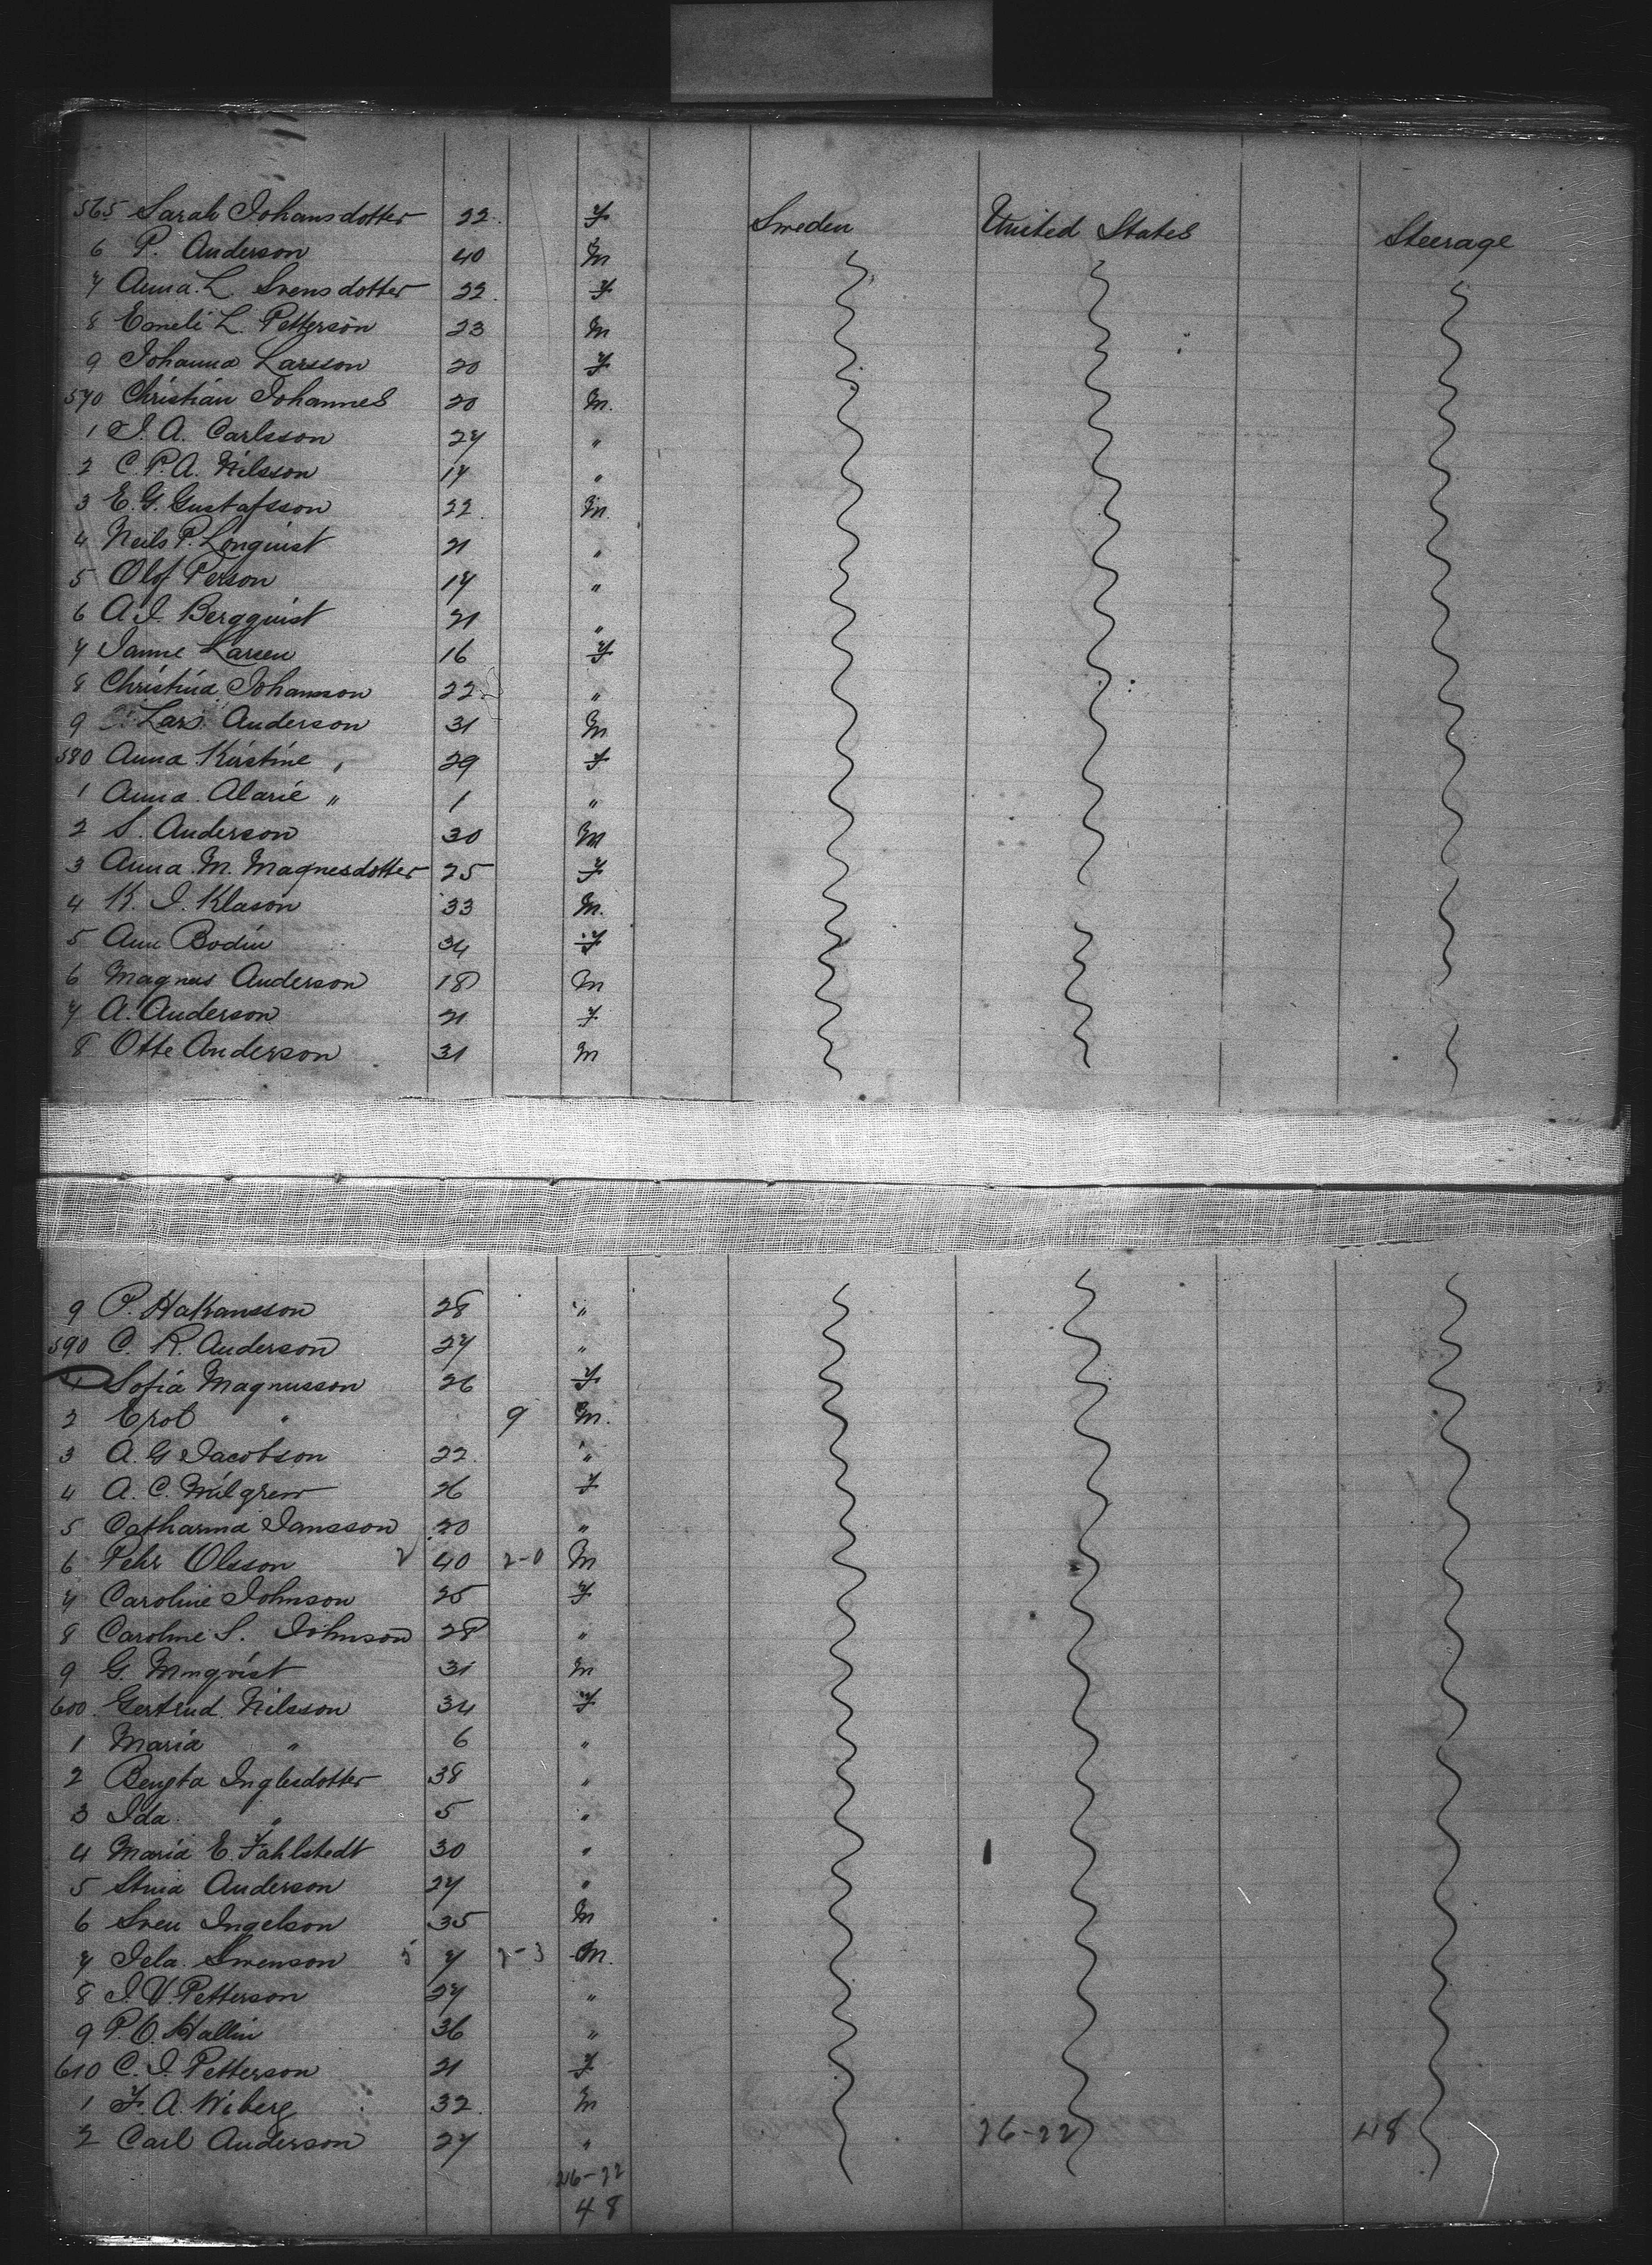 565 Sarah Johansdotter 22 F Sweden United States Steerage
6 P. Anderson 40 M
7 Anna L. Svensdotter 22 F
8 Emeli L. Petterson 23 M
9 Johanna Larsson 20 F
570 Christian Johannes 20 M.
1 J. A. Carlsson 27 "
2 C. P. A. Nilsson 17 "
3 E. G. Gustafsson 22 M.
4 Neils P. Lonquist 21 "
5 Olof Person 17 "
6 A. J. Bergquist 21 "
7 Janne Larsen 16 F
8 Christina Johansson 22 "
9 Lars Anderson 31 M
580 Anna Kirstine " 29 F
1 Anna Alarie " 1 "
2 S. Anderson 30 M
3 Anna M. Magnesdotter 25 F
4 K. J. Klason 33 M.
5 Ann Bodin 34 F
6 Magnus Anderson 18 M
7 A. Anderson 21 F
8 Otte Anderson 31 M
9 P. Hakansson 28 "
590 C. R. Anderson 27 "
1 Sofia Magnusson 26 F
2 " 9 M.
3 A. G Jacobson 22 "
4 A. C. Milgren 26 F
5 Catharina Jansson 20 "
6 Pehr Olsson 2 40 2-0 M
7 Caroline Johnson 25 F
8 Caroline S. Johnson 28 "
9 G. 31 M
600 Gertrud Nilsson 34 F
1 Maria " 6 "
2 Bengta Inglesdotter 38 "
3 Ida " 5 "
4 Maria E. Fahlstedt 30 "
5 Stina Anderson 27 "
6 Sven Ingelson 35 M
7 Jela Swenson 5 7 2-3 M.
8 J. V. Petterson 27 "
9 P. O. Hallin 36 "
610 C. J. Petterson 21 F
1 F. A. Wiberg 32 M
2 Carl Anderson 27 " 26-22 48
26-22
48